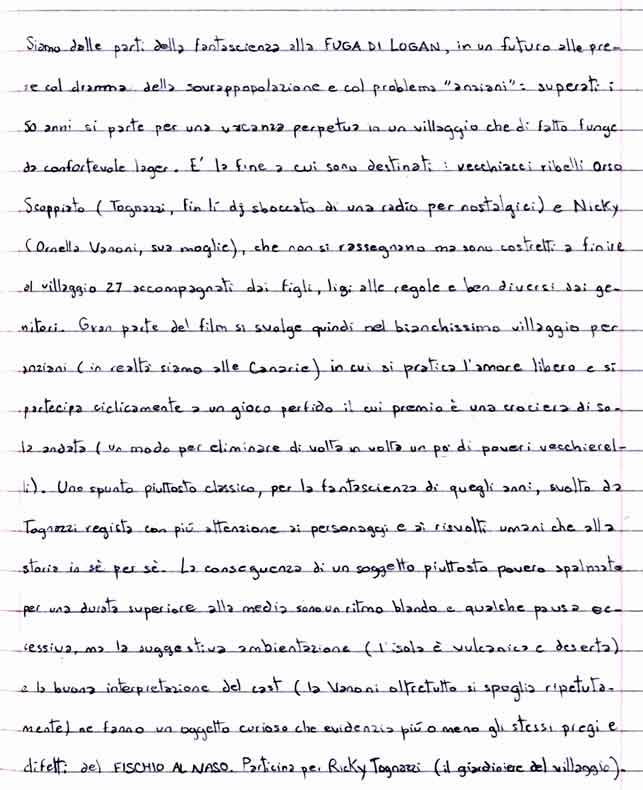 Siamo dalle parti della fantascienza alla FUGA DI LOGAN, in un futuro alle pre-
se col dramma della sovrappopolazione e col problema "anziani": superati i
50 anni si parte per una vacanza perpetua in un villaggio che di fatto funge
da confortevole lager. E' la fine a cui sono destinati i vecchiacci ribelli Orso
Scoppiato (Tognazzi, fin lì dj sboccato di una radio per nostalgici) e Nicky
(Ornella Vanoni, sua moglie), che non si rassegnano ma sono costretti a finire
al villaggio 27 accompagnati dai figli, ligi alle regole e ben diversi dai ge-
nitori. Gran parte del film si svolge quindi nel bianchissimo villaggio per
anziani (in realtà siamo alle Canarie) in cui si pratica l'amore libero e si
partecipa ciclicamente a un gioco perfido il cui premio è una crociera di so-
la andata (un modo per eliminare di volta in volta un po' di poveri vecchierel-
li). Uno spunto piuttosto classico, per la fantascienza di quegli anni, svolto da
Tognazzi regista con più attenzione ai personaggi e ai risvolti umani che alla
storia in sè per sè. La conseguenza di un soggetto piuttosto povero spalmato
per una durata superiore alla media sono un ritmo blando e qualche pausa ec-
cessiva, ma la suggestiva ambientazione (l'isola è vulcanica e deserta)
e la buona interpretazione del cast (la Vanoni oltretutto si spoglia ripetuta-
mente) ne fanno un oggetto curioso che evidenzia più o meno gli stessi pregi e
difetti del FISCHIO AL NASO. Particina per Ricky Tognazzi (il giardiniere del villaggio).